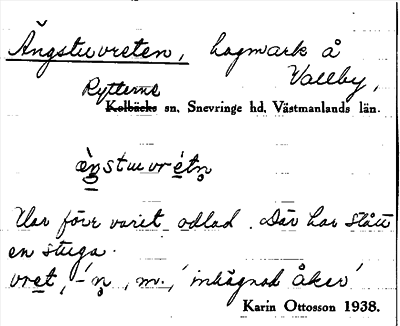 Ängstuvreten, hagmark å
Vallby,
Rytterne
Kolbäcks sn, Snevringe hd, Västmanlands län.
ä̀ŋstuvrétn̥
Har förr varit odlad. Där har stått
en stuga.
vret, -́n̥, m., 'inhägnad åker'
Karin Ottosson 1938.